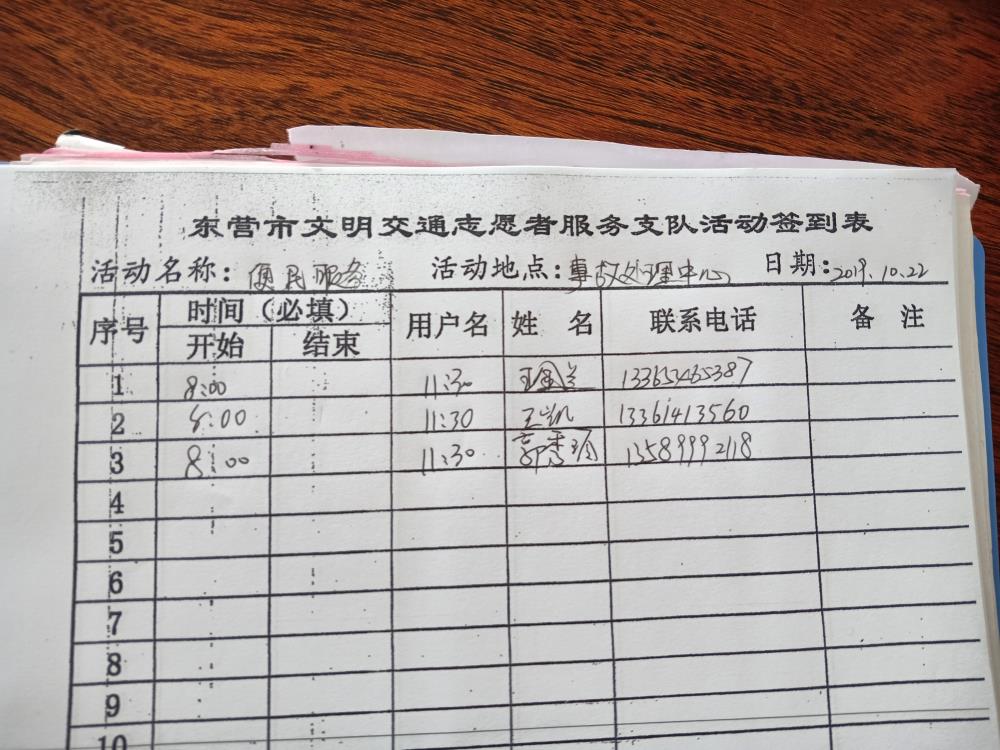 东营市文明交通志愿者服务支队活动签到表
活动名称：便民服务 活动地点：事故处理中心 日期：2019.10.22
序号 时间（必填） 用户名 姓 名 联系电话 备 注
开始 结束
1 8:00 11:30 13365465387
2 8:00 11:30 王凯 13361413560
3 8:00 11:30 郭秀娟 13589992118
4
5
6
7
8
9
10